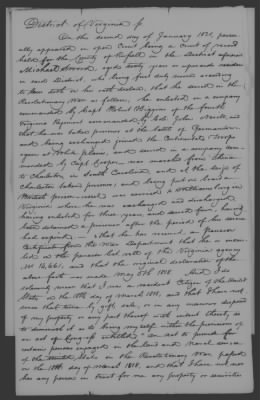 District of Virginia
On this second day of January 1821 personally
appeared in open Court being a court of record
held for the County of in the District aforesaid
Michael aged sixty years or upwards resident
in said District, who being first duly sworn according
to law doth on his oath declare, that he served in the
Revolutionary War as follows: he enlisted in a company
commanded by Capt Robert Higgins of the fourth
Virginia Regiment commanded by Col. John Nevill
that he was taken prisoner at the battle of Germantown
and being exchanged joined the Continental Troops
again at plains, and served in a company commanded
by Capt Cooper was marched from thence
to Charleston in South Carolina, and at the siege of
Charleston taken prisoner, and being put on board a
British prison was carried to Williamsburg in
Virginia where he was exchanged and discharged
having enlisted for three years and served
been detained a prisoner after the period of his service
had expired - that he has received a pension
Certificate from the War Department that he is enrolled
on the pension list roll of the Virginia agency
and that the original declaration of the
above facts was made May 8th 1818. And I do
solemnly swear that I was a resident Citizen of the United
States on the 18th day of March 1818, and that I have not
since that time by gift, sale, or in any manner disposed
of my property or any part thereof with intent thereby so
to diminish it as to bring myself within the provisions of
an act of Congress entitled an act to provide for
certain persons engaged in the land and Naval service
of the United States in the Revolutionary War passed
on the 18th day of March 1818, and that I have not nor
has any person in trust for me any property or securities